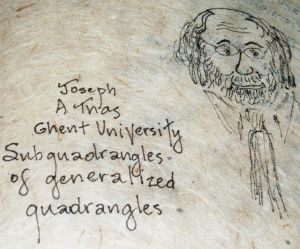 Joseph
A Thas
Ghent University
Subquadrangles
of generalized
quadrangles